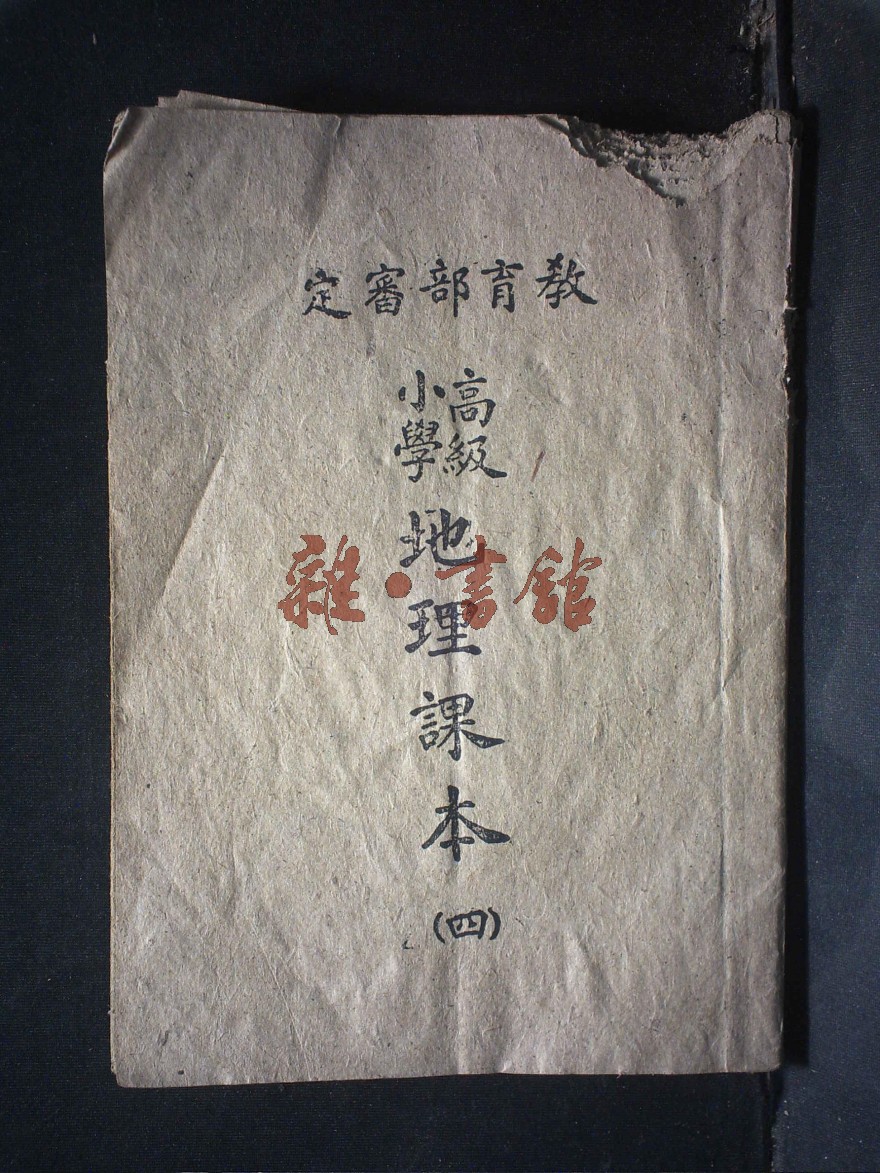 教育部審定
高級
小學
地理課本
(四)
雜·書館